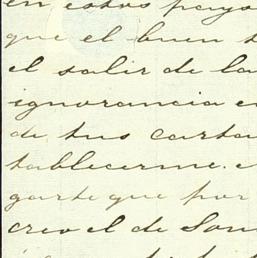 en estos pays
que el buen t
el salir de la
ignorancia e
de tus carta
tablecerme. e
garte que por
creo el de Son